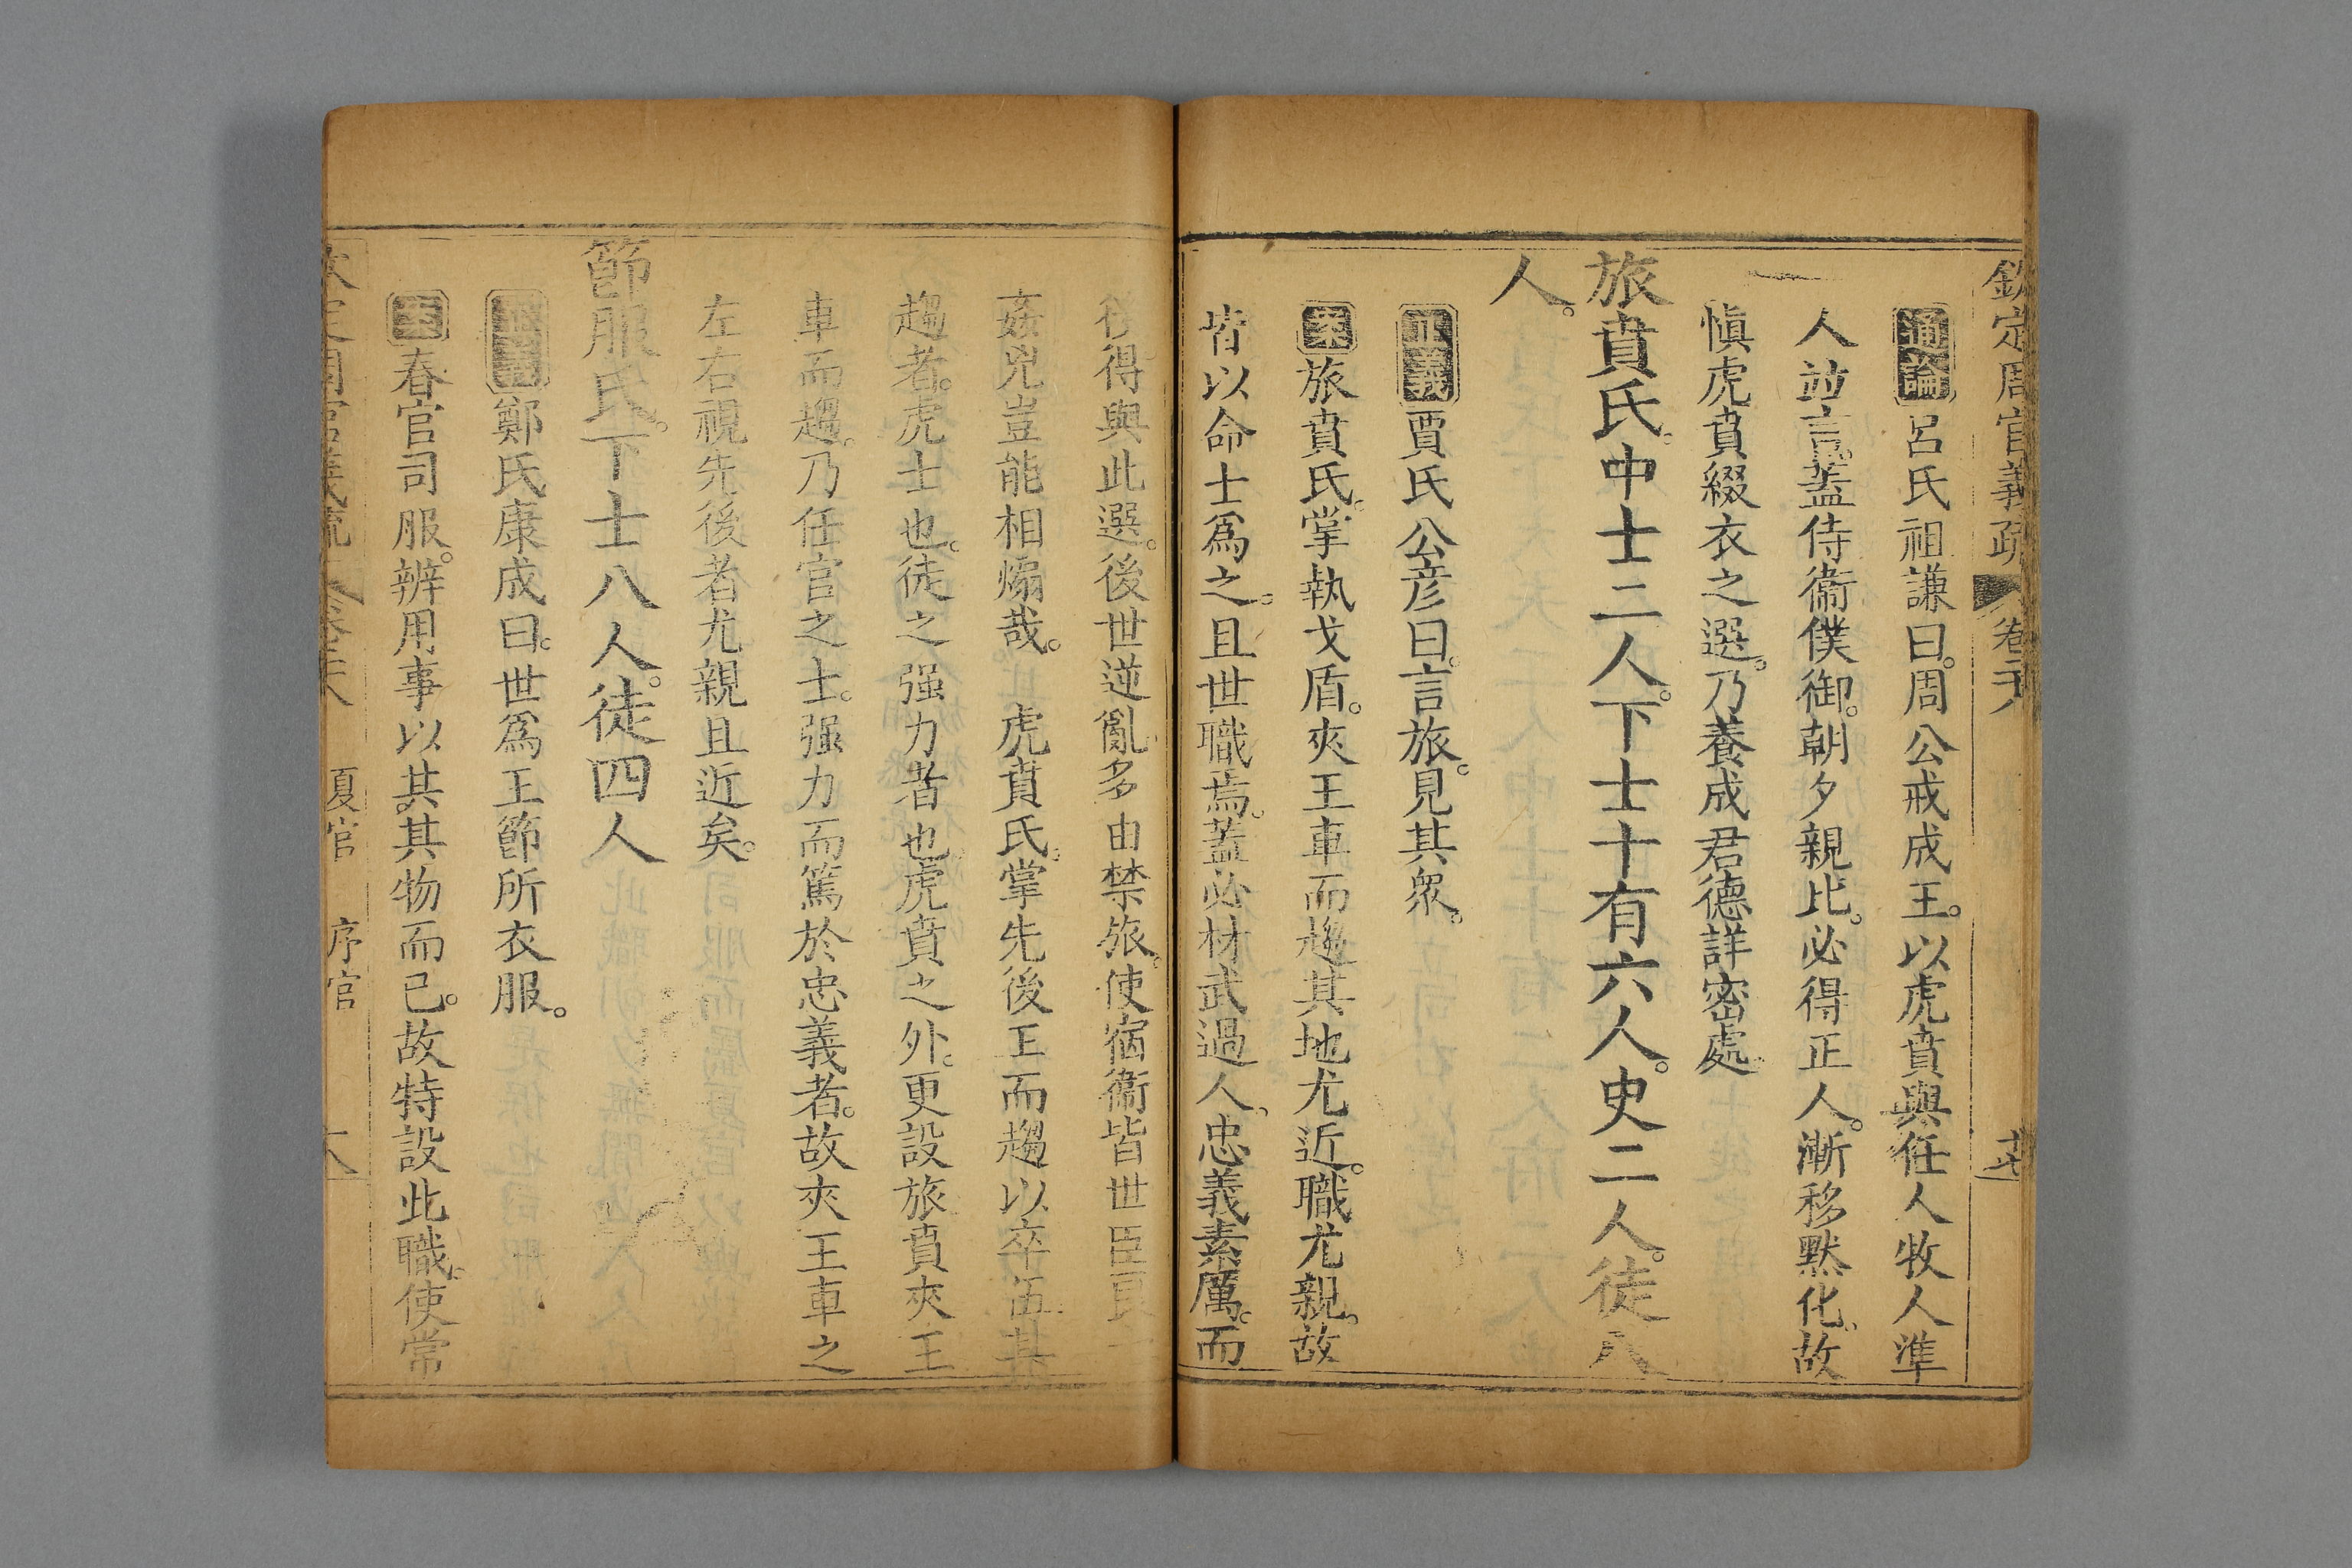 欽定周官義疏 卷二十八 十七
通論 呂氏祖謙曰。周公戒成王。以虎賁與任人牧人準
人竝言。蓋侍衞僕御。朝夕親比。必得正人。漸移默化。故
愼虎賁綴衣之選。乃養成君德詳密處。
旅賁氏。中士二人。下士十有六人。史二人。徒八
人。
正義 賈氏公彦曰。言旅。見其衆。
案 旅賁氏。掌執戈盾。夾王車而趨。其地尤近。職尤親。故
皆以命士爲之。且世職焉。蓋必材武過人。忠義素厲。而
後得與此選。後世逆亂。多由禁旅。使宿衞皆世臣良
姦兇豈能相煽哉。 虎賁氏。掌先後王而趨以卒伍。其
趨者。虎士也。徒之强力者也。虎賁之外。更設旅賁夾王
車而趨。乃任官之士。强力而篤於忠義者。故夾王車之
左右視先後者尤親且近矣。
節服氏。下士八人。徒四人
鄭氏康成曰。世爲王節所衣服。
案 春官司服。辨用事以其其物而已。故特設此職。使常
定周官義疏 卷二十八 夏官 序官 十八